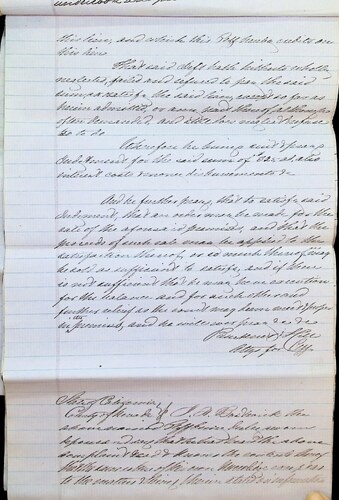 this lien, and which this Plff hereby credits on
this lien
That said deft hath hitherto wholly
neglected, failed and refused to pay the said
sum or satisfy the said lien, except so far as
herein admitted, or any part thereof although
often demanded, and still so neglects & refuses
so to do
Wherefore he brings suit & prays
Judgement for the said sum of also
interest costs disbursements &c
And he further prays, that to satisfy said
Judgment, that an order may be made for the
sale of the aforesaid premises, and that the
proceeds of such sale may be applied to the
satisfaction thereof, or so much thereof may
be sold as sufficient to satisfy, and if there
is not sufficient that he may have execution
for the balance and for such other and
further relief as the court may deem meet & proper
in premises, and he will ever pray &c &c
Attys for Plff
State of California
County of J. B. the
above named Plff being duly sworn
deposes & says that he has read the above
complaint & knows the contents thereof
that the same is true of his own knowledge except as
to the matters & things therein stated